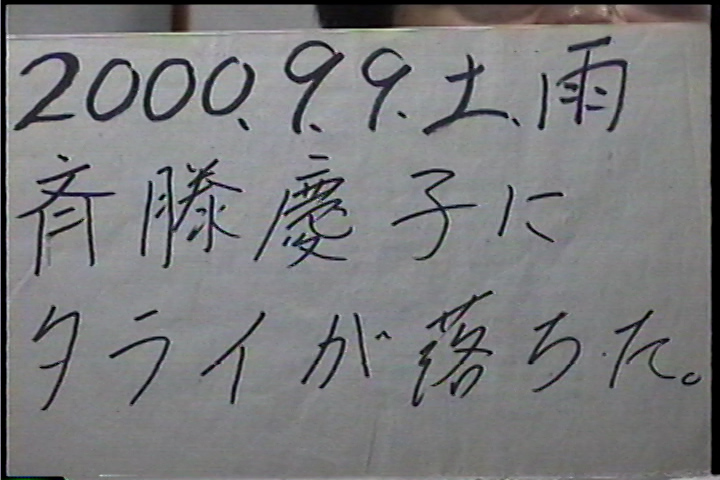 2000.9.9.土.雨
斉藤慶子に
タライが落ちた。